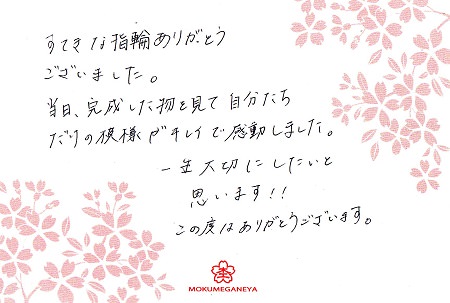 すてきな指輪ありがとう
ございました。
当日、完成した物を見て自分たち
だけの模様がキレイで感動しました。
一生大切にしたいと
思います!!
この度はありがとうございます。
MOKUMEGANEYA